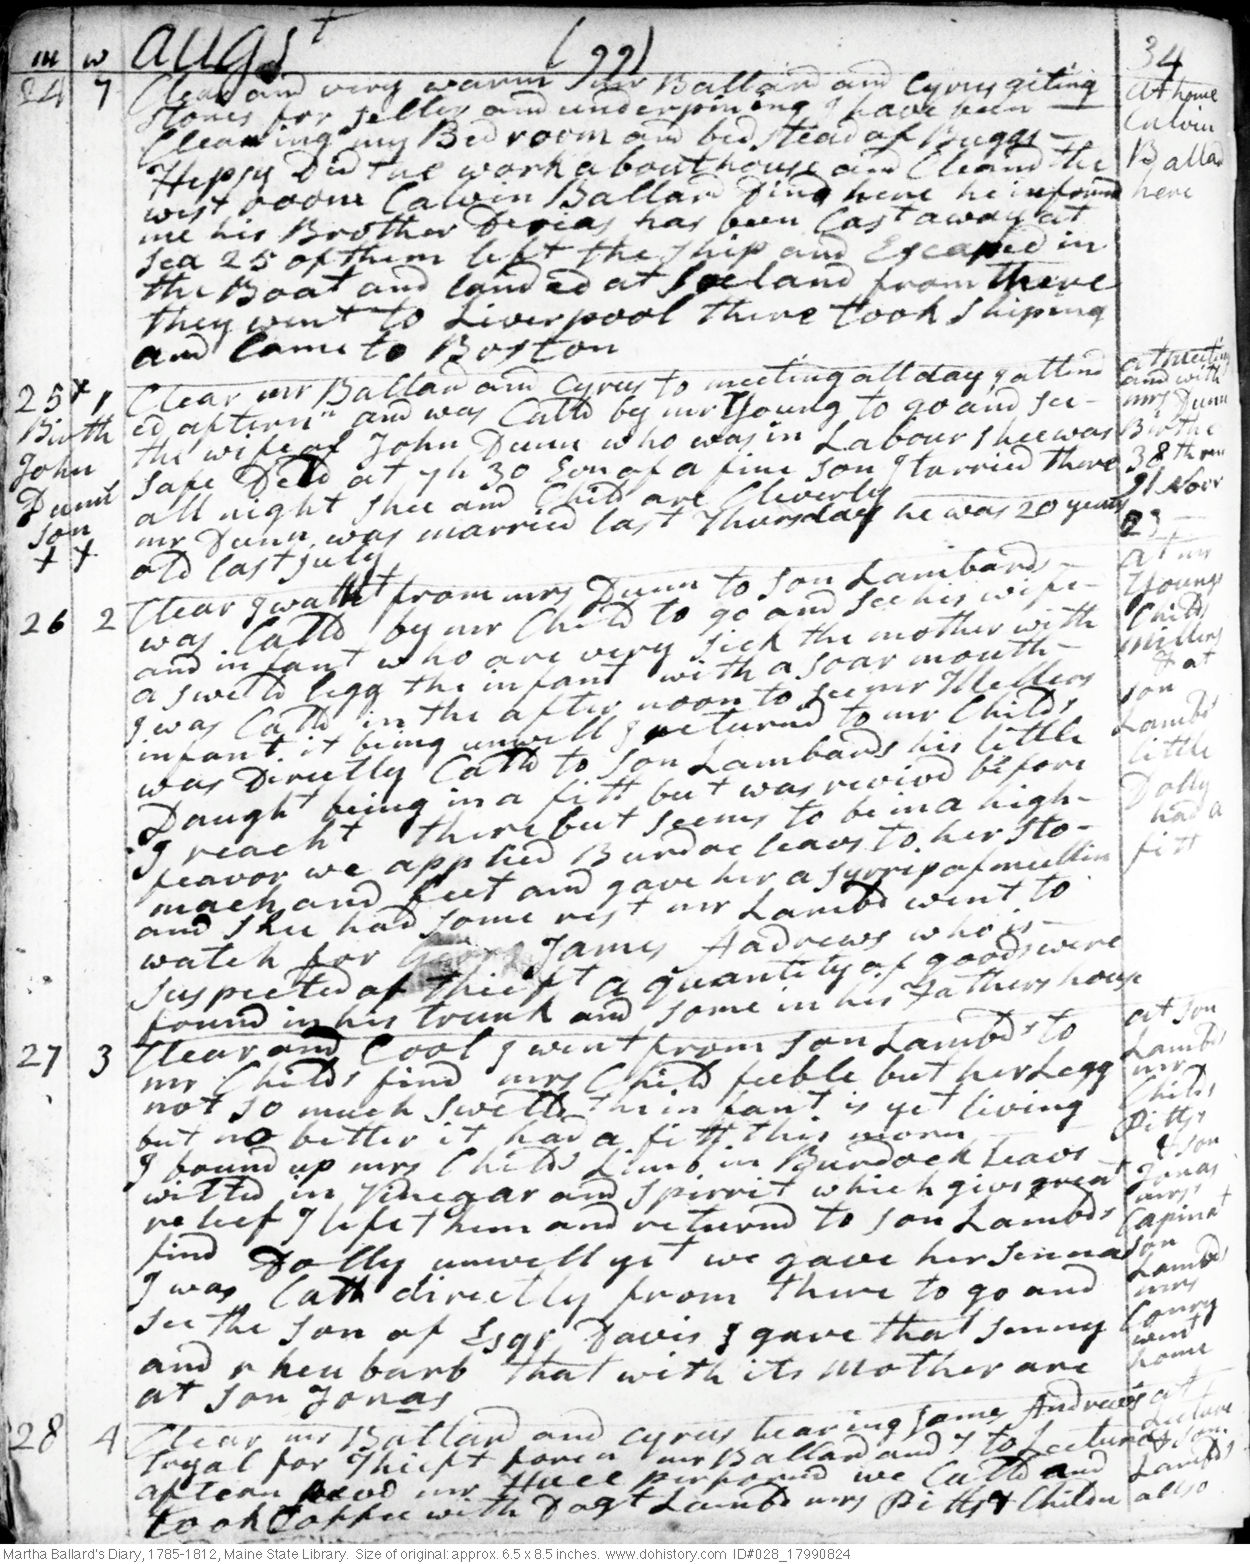 m w augst (99) 34
24 7 Clear and very warm mr Ballard and Cyrus giting
stones for sellers and underpining I have been
Cleaning my Bedroom and bedstead of Buggs
Hepsy Did the work about house and Cleand the
west room Calvin Ballard Dind here he informd
me his Brother Derias has been Cast away at
sea 25 of them left the ship and Escaped in
the Boat and landed at Iceland from there
they went to Liverpool there took shiping
and Came to Boston
at home
Calvin
Ballad
here
25 1 Clear mr Ballard and Cyrus to meeting all day I attend
ed aftern and was Calld by mr Young to go and see
the wife of John Dunn who was in Labour shee was
safe Deld at 7h 30 Evn of a fine son I tarried there
all night shee and Child are Cleverly
mr Dunn was married last Thursday he was 20 years
old last july
Birth
John
Dunns
son
+ +
at meeting
and with
mrs Dunn
Birth
38th
26 2 Clear I walkt from mrs Dunn to son Lambards
was Calld by mr Child to go and see his wife
and infant who are very sick the mother with
a sweld legg the infant with a soar mouth
I was Calld in the after noon to see mr Mellers
infant it being unwell I returnd to mr Childs
was Directly Calld to son Lambards his little
Daught being in a fitt but was revivd before
I reacht there but seems to be in a high
feavor we applied Burdoc leavs to her sto-
mach and feet and gave her a syrrip of mullin
and shee had some rest mr Lambd went to
watch for James Andrews who is
suspected of thieft a quantity of goods were
found in his trunk and some in his Fathers house
at mr
Youngs
Childs
Millers
& at
son
Lambds
little
Dolly
had a
fitt
27 3 Clear and Cool I went from son Lambds to
mr Childs find mrs Child feeble but her Legg
not so much sweld the infant is yet living
but no better it had a fitt this morn
I bound up mrs Childs Limb in Burdock Leavs
wilted in Vinegar and spirrit which givs great
releef I left them and returnd to son Lambds
find Dolly unwell yet we gave her senna
I was Calld directly from there to go and
see the son of Esqr Davis I gave that senny
and rheubarb that with its Mother are
at son Jonas
at son
Lambds
mr
Childs
Pitts
& son
Jonas
mrs
son
Lambds
mrs
Conry
went
home
28 4 Clear mr Ballard and Cyrus hearing James Andrews
tryal for Thieft foren mr Ballard and I to Lecture
aftern revd mr Huee performd we Calld and
took Coffee with Dagt Lambd mrs Pitts & Childn
at
Lecture
& son
Lambds
allso
Martha Ballard's Diary, 1785-1812, Maine State Library. Size of original: approx. 6.5 x 8.5 inches. www.dohistory.com ID#028_17990824